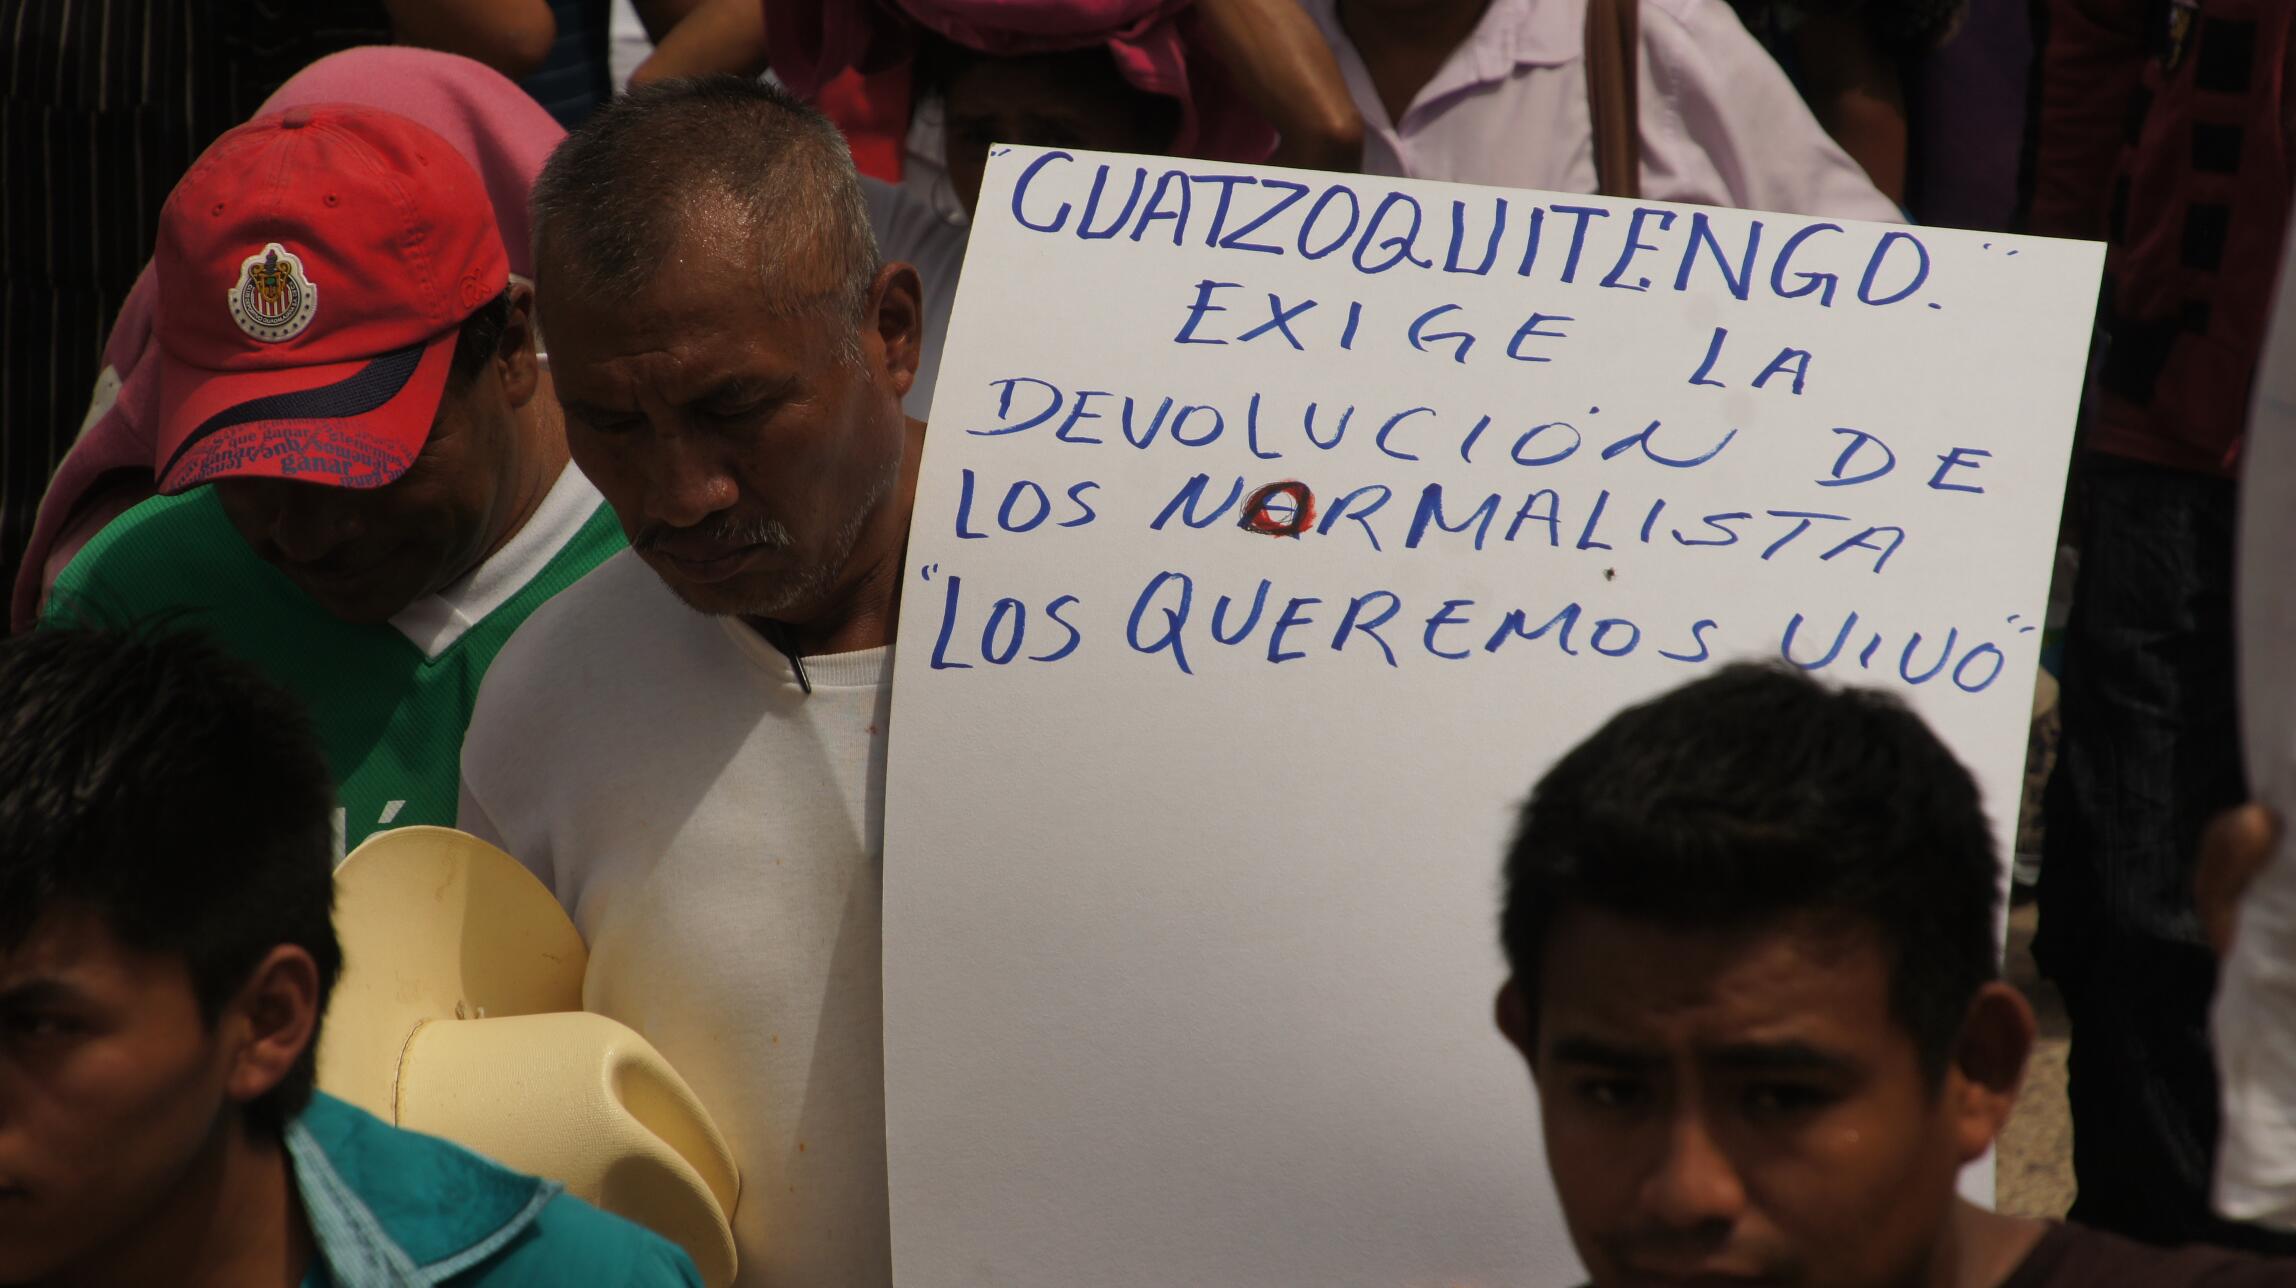 "CUATZOQUITENGO."
EXIGE LA
DEVOLUCIÓN DE
LOS NORMALISTA
"LOS QUEREMOS VIVO"
ganar
que ganar